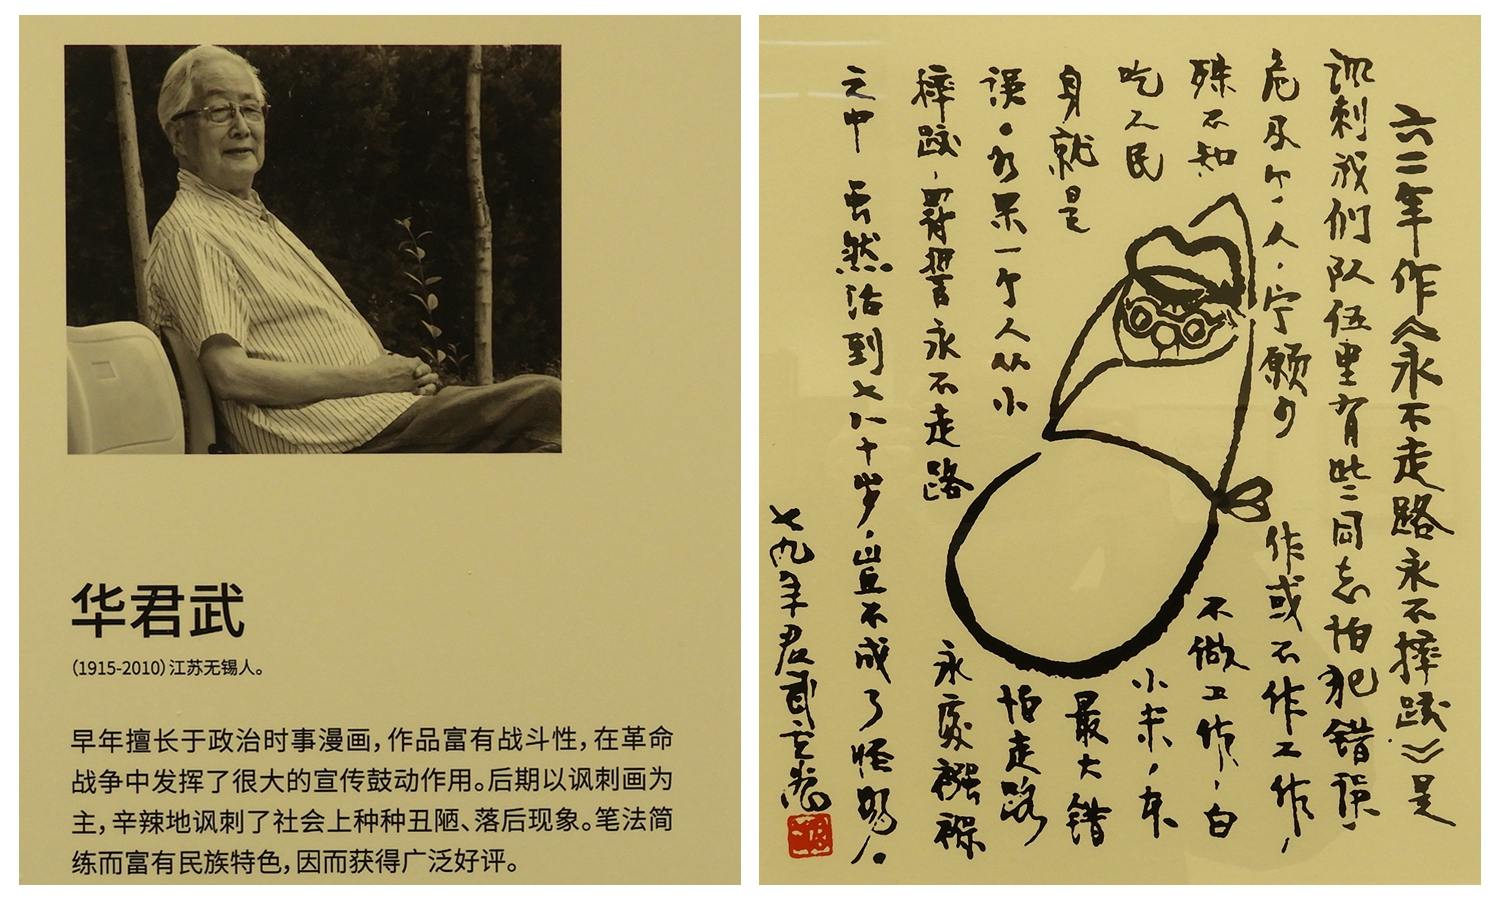 华君武
(1915-2010)江苏无锡人。
早年擅长于政治时事漫画,作品富有战斗性,在革命
战争中发挥了很大的宣传鼓动作用。后期以讽刺画为
主,辛辣地讽刺了社会上种种丑陋、落后现象。笔法简
练而富有民族特色,因而获得广泛好评。
六二年作《永不走路永不摔跤》是
讽刺我们队伍里有些同志怕犯错误,
危及个人,宁愿少作或不作工作,
殊不知不做工作,白
吃人民小米,本
身就是最大错
误。如果一个人从小怕走路
摔跤,发誓永不走路永处襁褓
之中 虽然活到七八十岁,岂不成了怪物。
七九年君武